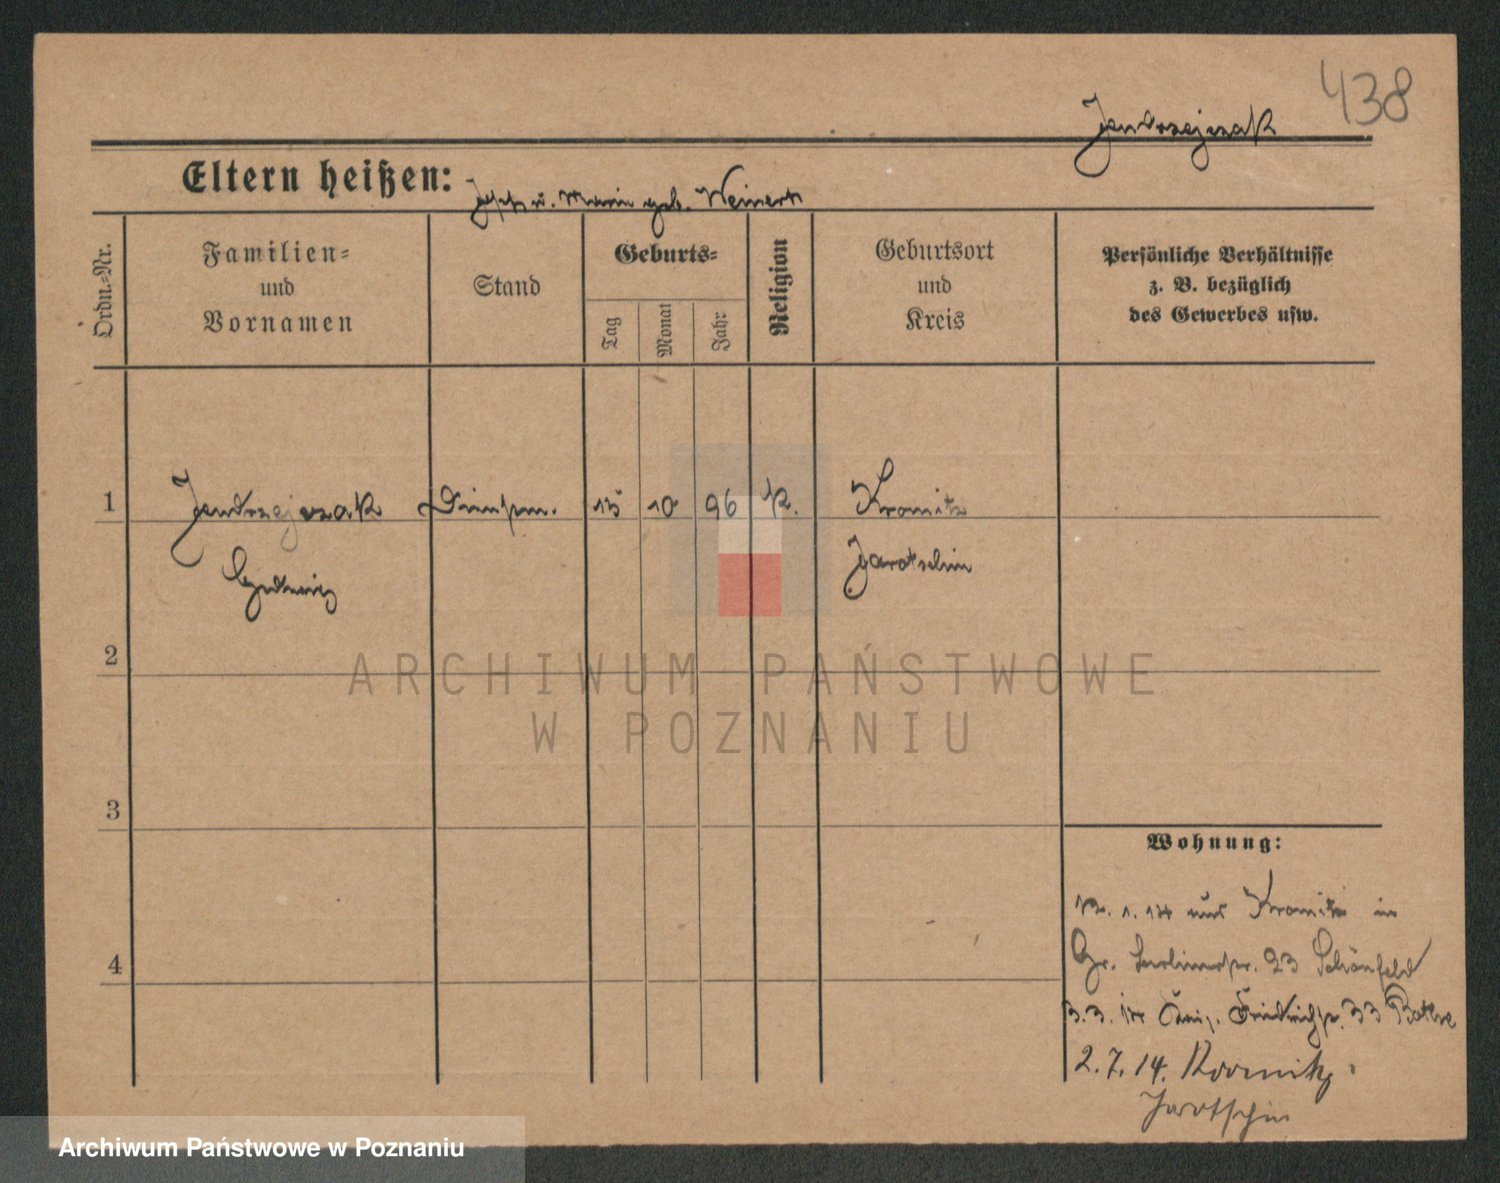 438
Jendrzejczak
Eltern heißen: Joseph u. Maria geb. Weinert
Ordn.=Nr.
Familien=
und
Vornamen
Stand
Geburts=
Tag
Monat
Jahr
Religion
Geburtsort
und
Kreis
Persönliche Verhältnisse
z. B. bezüglich
des Gewerbes usw.
1 Jendrzejczak 15 10 96 K. Kromitz
Jarotschin
2
3
4
Wohnung:
12. 1. 14 aus Kromitz in
Gr. 23 Schönfeld
3. 3. 14 Friedrichstr. 33
2. 7. 14. Kromitz,
Jarotschin
ARCHIWUM PAŃSTWOWE
W POZNANIU
Archiwum Państwowe w Poznaniu